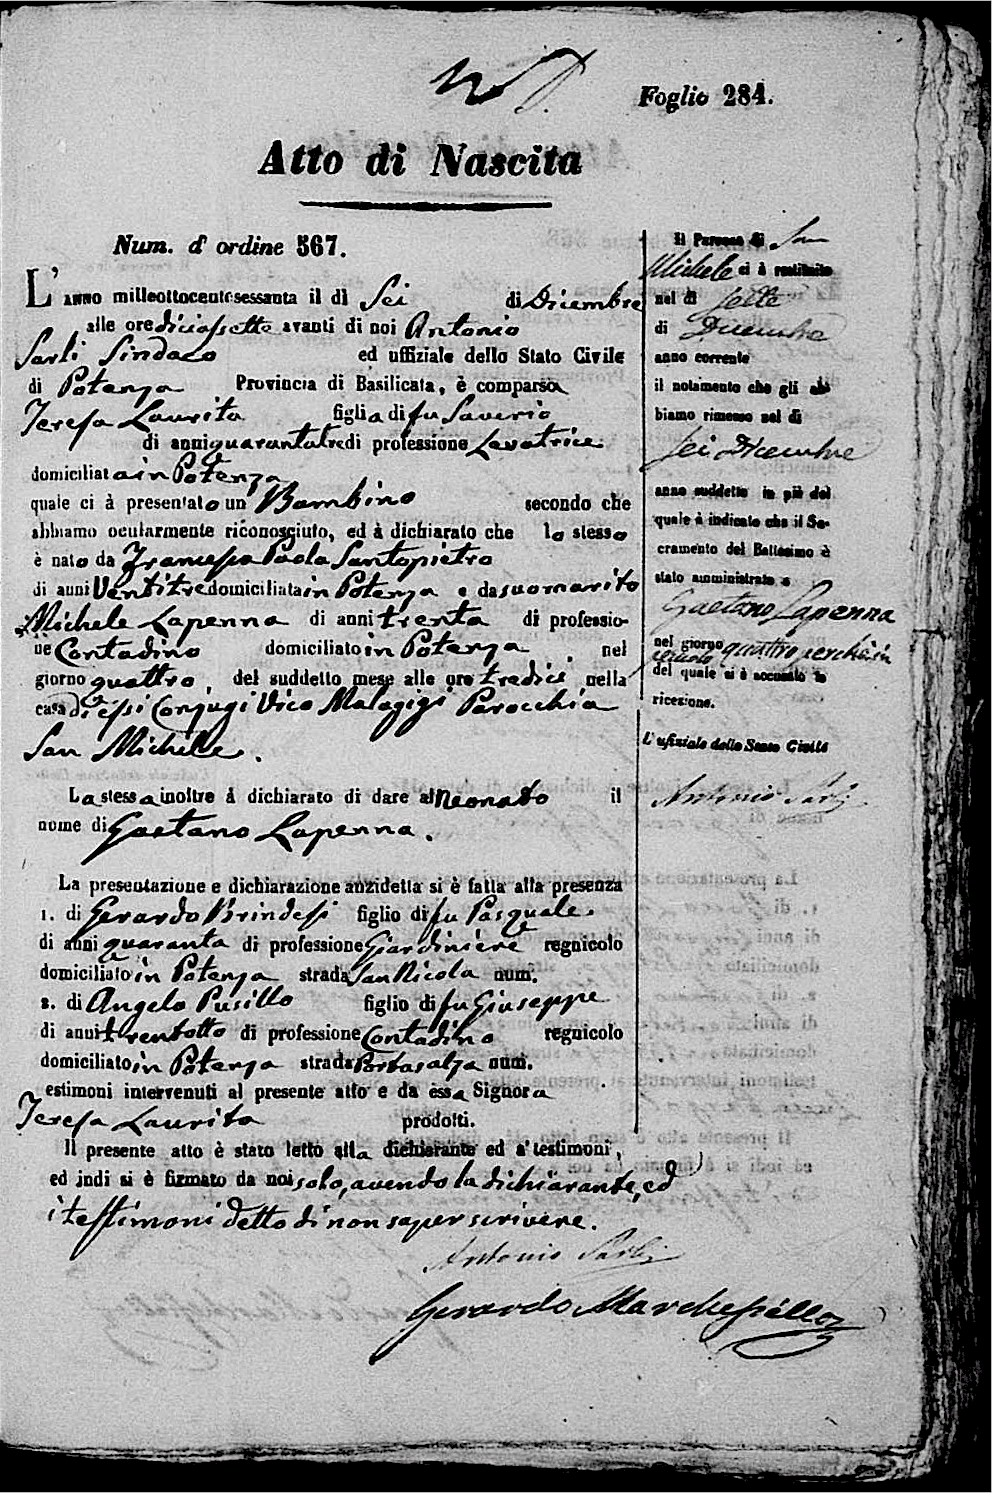 Foglio 284.
Atto di Nascita
Num. d' ordine 567.
L'anno milleottocentosessanta il dì Sei di Dicembre
alle ore diciassette avanti di noi Antonio
Sarli Sindaco ed uffiziale dello Stato Civile
di Potenza Provincia di Basilicata, è comparsa
Teresa Laurita figlia di fu Saverio
di anni quarantatre di professione Levatrice
domiciliata in Potenza
quale ci à presentato un Bambino secondo che
abbiamo ocularmente riconosciuto, ed à dichiarato che lo stesso
è nato da Francesca Paola Santopietro
di anni Ventitre domiciliata in Potenza e da suo marito
Michele Lapenna di anni trenta di professio-
ne Contadino domiciliato in Potenza nel
giorno quattro, del suddetto mese alle ore tredici nella
casa di essi Conjugi Vico Malagigi Parocchia
San Michele.
La stessa inoltre à dichiarato di dare al Neonato il
nome di Gaetano Lapenna.
La presentazione e dichiarazione anzidetta si è fatta alla presenza
1. di Gerardo Brindesi figlio di fu Pasquale
di anni quaranta di professione Giardiniere regnicolo
domiciliato in Potenza strada San Nicola num.
2. di Angelo Pusillo figlio di fu Giuseppe
di anni trentotto di professione Contadino regnicolo
domiciliato in Potenza strada Portasalza num.
testimoni intervenuti al presente atto e da essa Signora
Teresa Laurita prodotti.
Il presente atto è stato letto alla dichiarante ed a' testimoni,
ed indi si è firmato da noi solo, avendo la dichiarante, ed
i testimoni detto di non saper scrivere.
Antonio Sarli
Gerardo Marchesiello
Il Parroco di San
Michele ci à restituito
nel dì Sette
di Dicembre
anno corrente
il notamento che gli ab-
biamo rimesso nel dì
Sei Dicembre
anno suddetto in piè del
quale à indicato che il Sa-
cramento del Battesimo è
stato amministrato a
Gaetano Lapenna
nel giorno quattro perchè in
del quale si è accusato la
ricezione.
L'ufiziale dello Stato Civile
Antonio Sarli